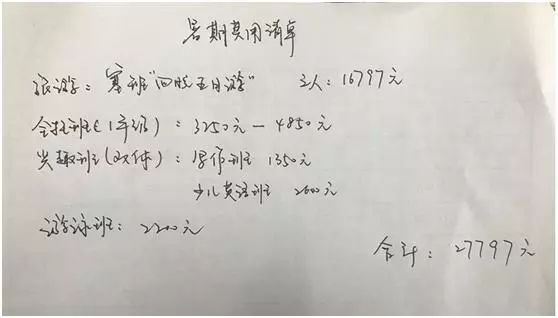 暑期费用清单
旅游：塞班"四晚五日游" 三人：16797元
全托班（1年级）：3250元－4850元
兴趣班（文体）：写作班 1350元
少儿英语班 2600元
游泳班：2200元
合计：27797元